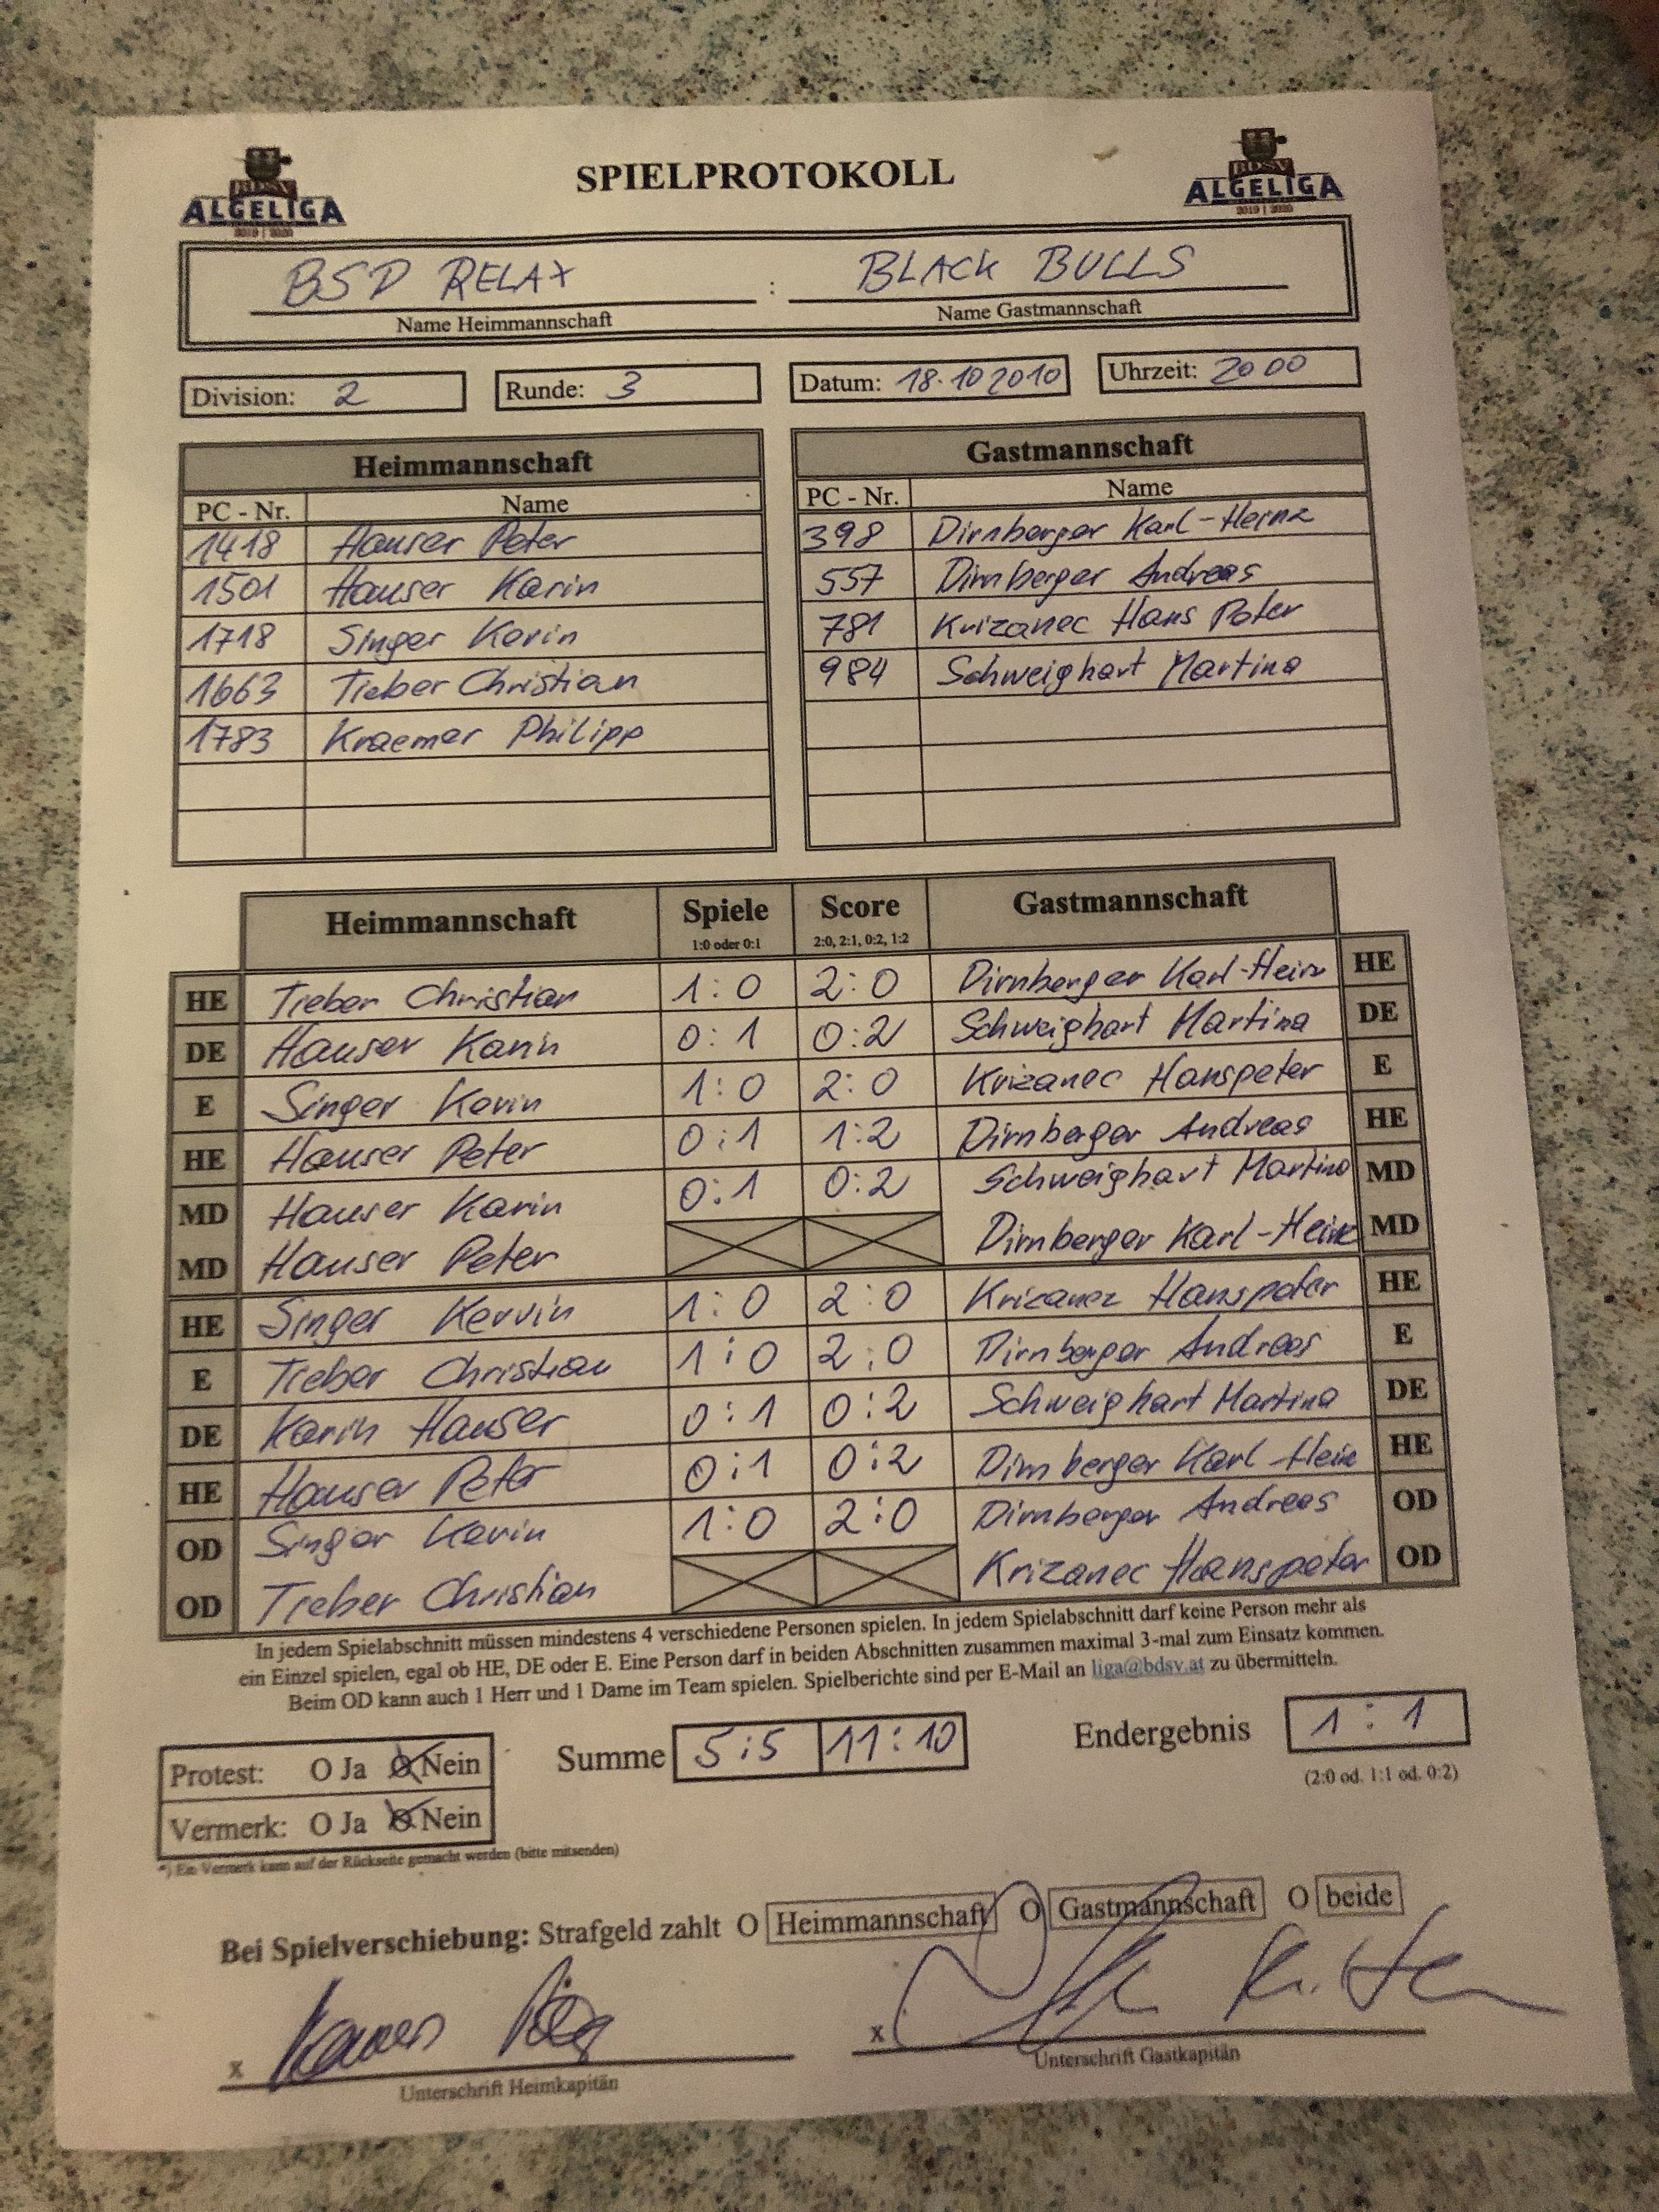 BDSV
ALGELIGA
2019 | 2020
SPIELPROTOKOLL
BDSV
ALGELIGA
2019 | 2020
BSD RELAX : BLACK BULLS
Name Heimmannschaft Name Gastmannschaft
Division: 2 Runde: 3 Datum: 18.10 2010 Uhrzeit: 20 00
Heimmannschaft Gastmannschaft
PC - Nr. Name PC - Nr. Name
1418 Hauser Peter 398 Dirnberger Karl-Heinz
1501 Hauser Karin 557 Dirnberger Andreas
1718 Singer Kevin 781 Krizanec Hans Peter
1663 Tieber Christian 984 Schweighart Martina
1783 Kraemer Philipp
Heimmannschaft Spiele Score Gastmannschaft
1:0 oder 0:1 2:0, 2:1, 0:2, 1:2
HE Tieber Christian 1:0 2:0 Dirnberger Karl-Heinz HE
DE Hauser Karin 0:1 0:2 Schweighart Martina DE
E Singer Kevin 1:0 2:0 Krizanec Hanspeter E
HE Hauser Peter 0:1 1:2 Dirnberger Andreas HE
MD Hauser Karin 0:1 0:2 Schweighart Martina MD
MD Hauser Peter Dirnberger Karl-Heinz MD
HE Singer Kevin 1:0 2:0 Krizanec Hanspeter HE
E Tieber Christian 1:0 2:0 Dirnberger Andreas E
DE Karin Hauser 0:1 0:2 Schweighart Martina DE
HE Hauser Peter 0:1 0:2 Dirnberger Karl Hein HE
OD Singer Kevin 1:0 2:0 Dirnberger Andreas OD
OD Tieber Christian Krizanec Hanspeter OD
In jedem Spielabschnitt müssen mindestens 4 verschiedene Personen spielen. In jedem Spielabschnitt darf keine Person mehr als
ein Einzel spielen, egal ob HE, DE oder E. Eine Person darf in beiden Abschnitten zusammen maximal 3-mal zum Einsatz kommen.
Beim OD kann auch 1 Herr und 1 Dame im Team spielen. Spielberichte sind per E-Mail an liga@bdsv.at zu übermitteln.
Protest: O Ja O Nein Summe 5:5 11:10 Endergebnis 1:1
Vermerk: O Ja O Nein (2:0 od. 1:1 od. 0:2)
*) Ein Vermerk kann auf der Rückseite gemacht werden (bitte mitsenden)
Bei Spielverschiebung: Strafgeld zahlt O Heimmannschaft O Gastmannschaft O beide
x x
Unterschrift Heimkapitän Unterschrift Gastkapitän